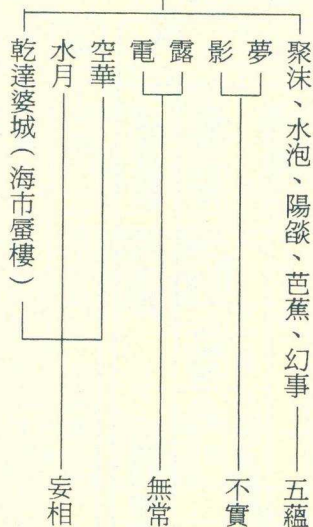 聚沫、水泡、陽燄、芭蕉、幻事
五蘊
夢
影
不實
露
電
無常
空華
水月
乾達婆城(海市蜃樓)
妄相